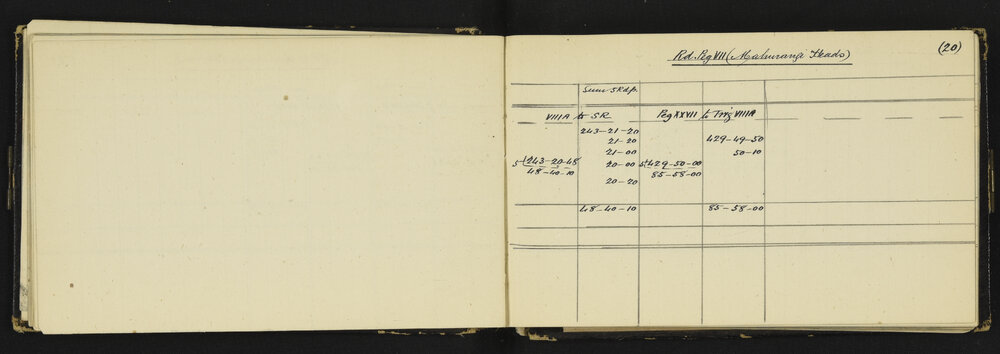 (20)
Rd. Peg VII (Mahurangi Heads)
VIIIA to SR Peg XXVII to Trig VIIIA
243-21-20
21-20 429-49-50
21-00 50-10
5)243-20-48 20-00 5)429-50-00
48-40-10 85-58-00
20-20
48-40-10 85-58-00